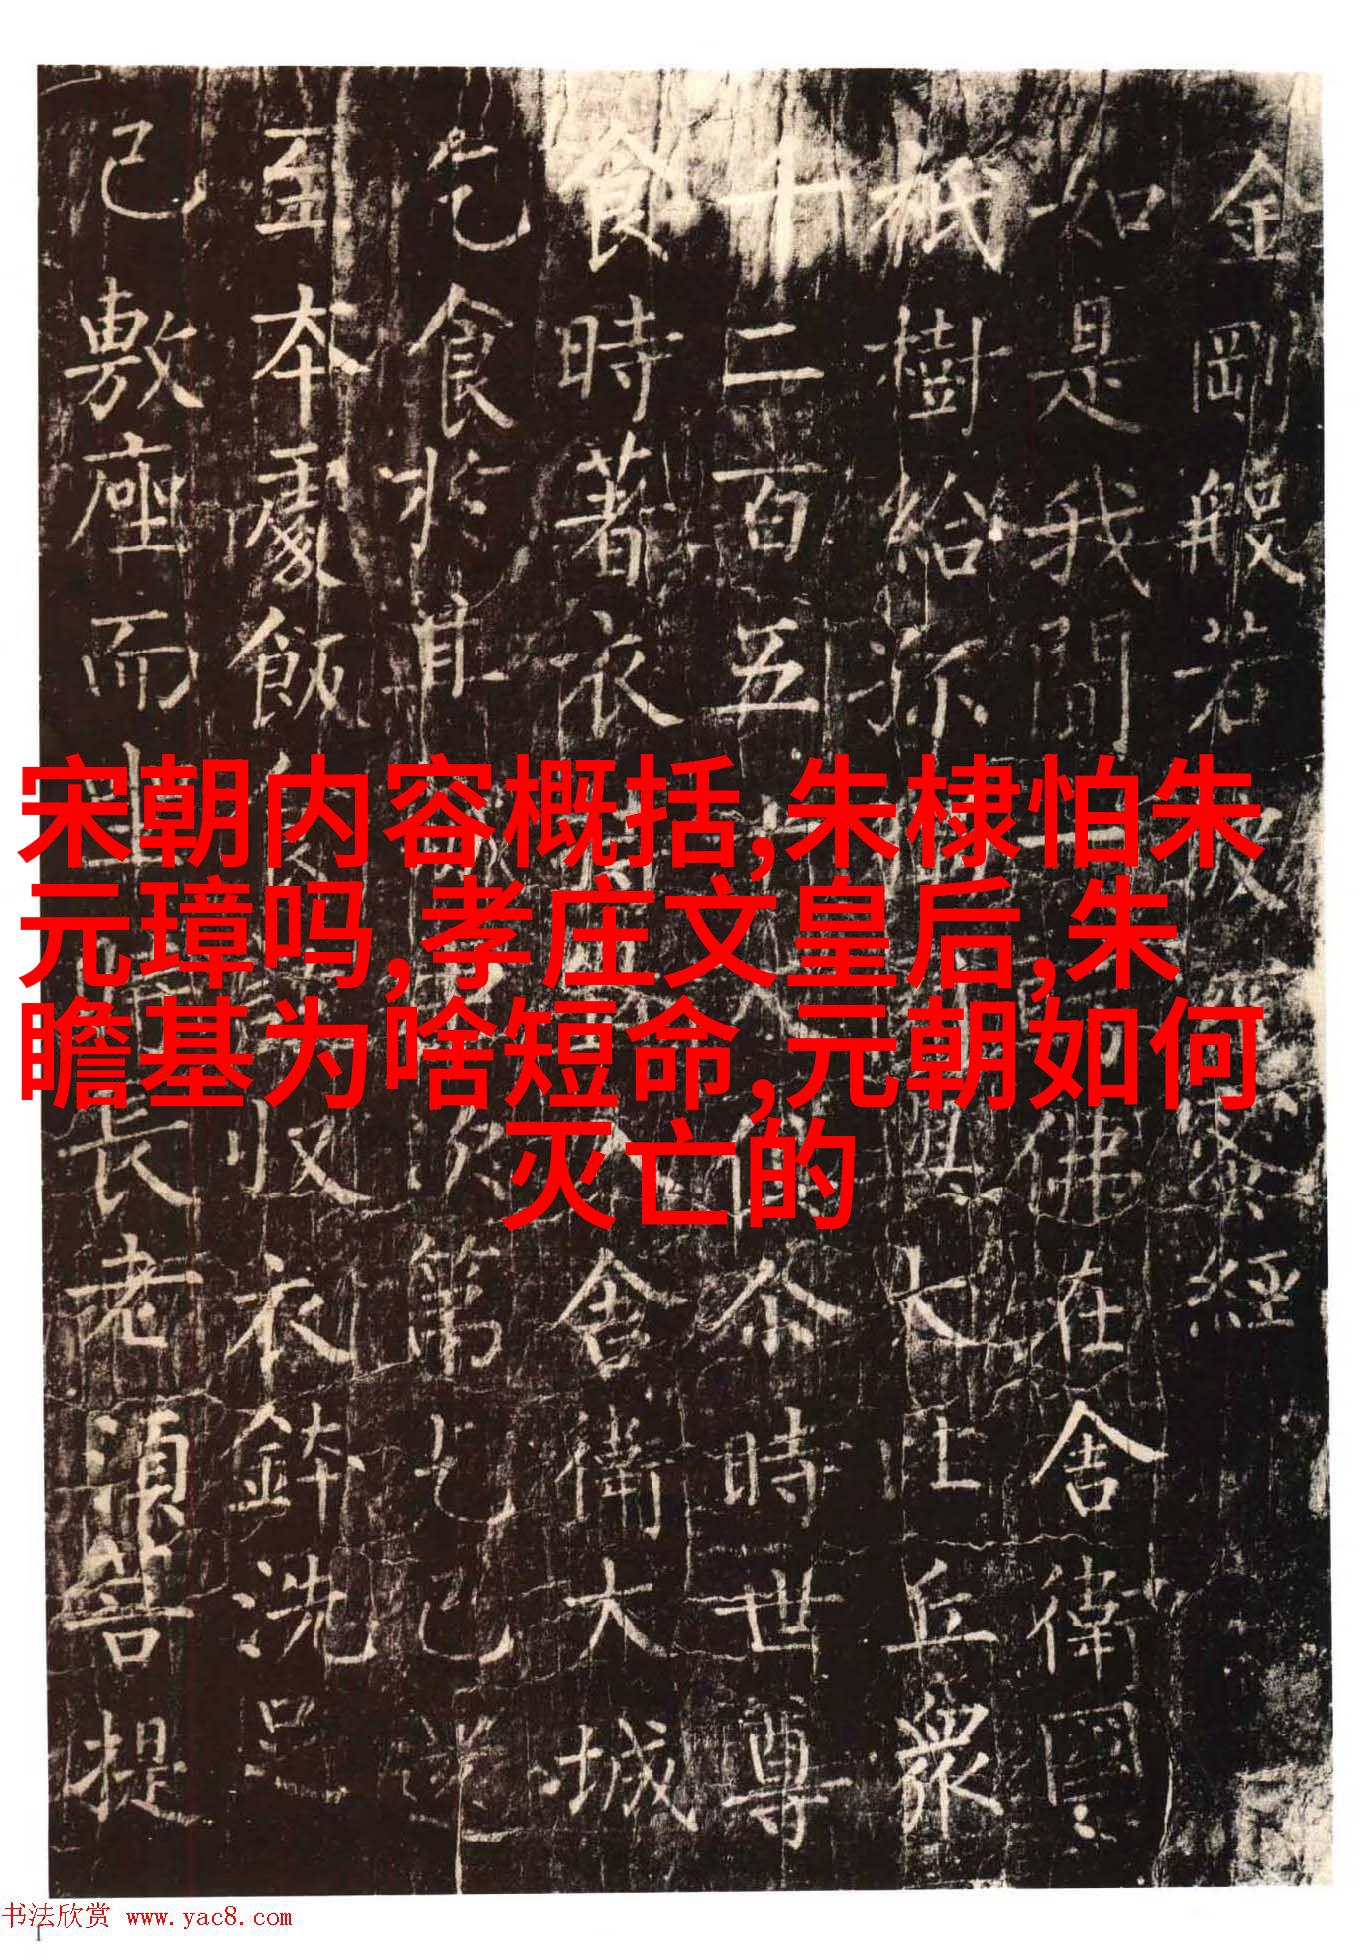 金剛般若波蜜經
如是我聞一佛在舍衛國
祇樹給孤大比丘衆
十二百五十人俱尒時世尊
食時著衣入舍衛大城
乞食於其次第乞已還
至本處飯食收衣鉢洗足
已敷座而長老須菩提
宋朝内容概括,朱棣怕朱
元璋吗,孝庄文皇后,朱
瞻基为啥短命,元朝如何
灭亡的
书法欣赏 www.yac8.com